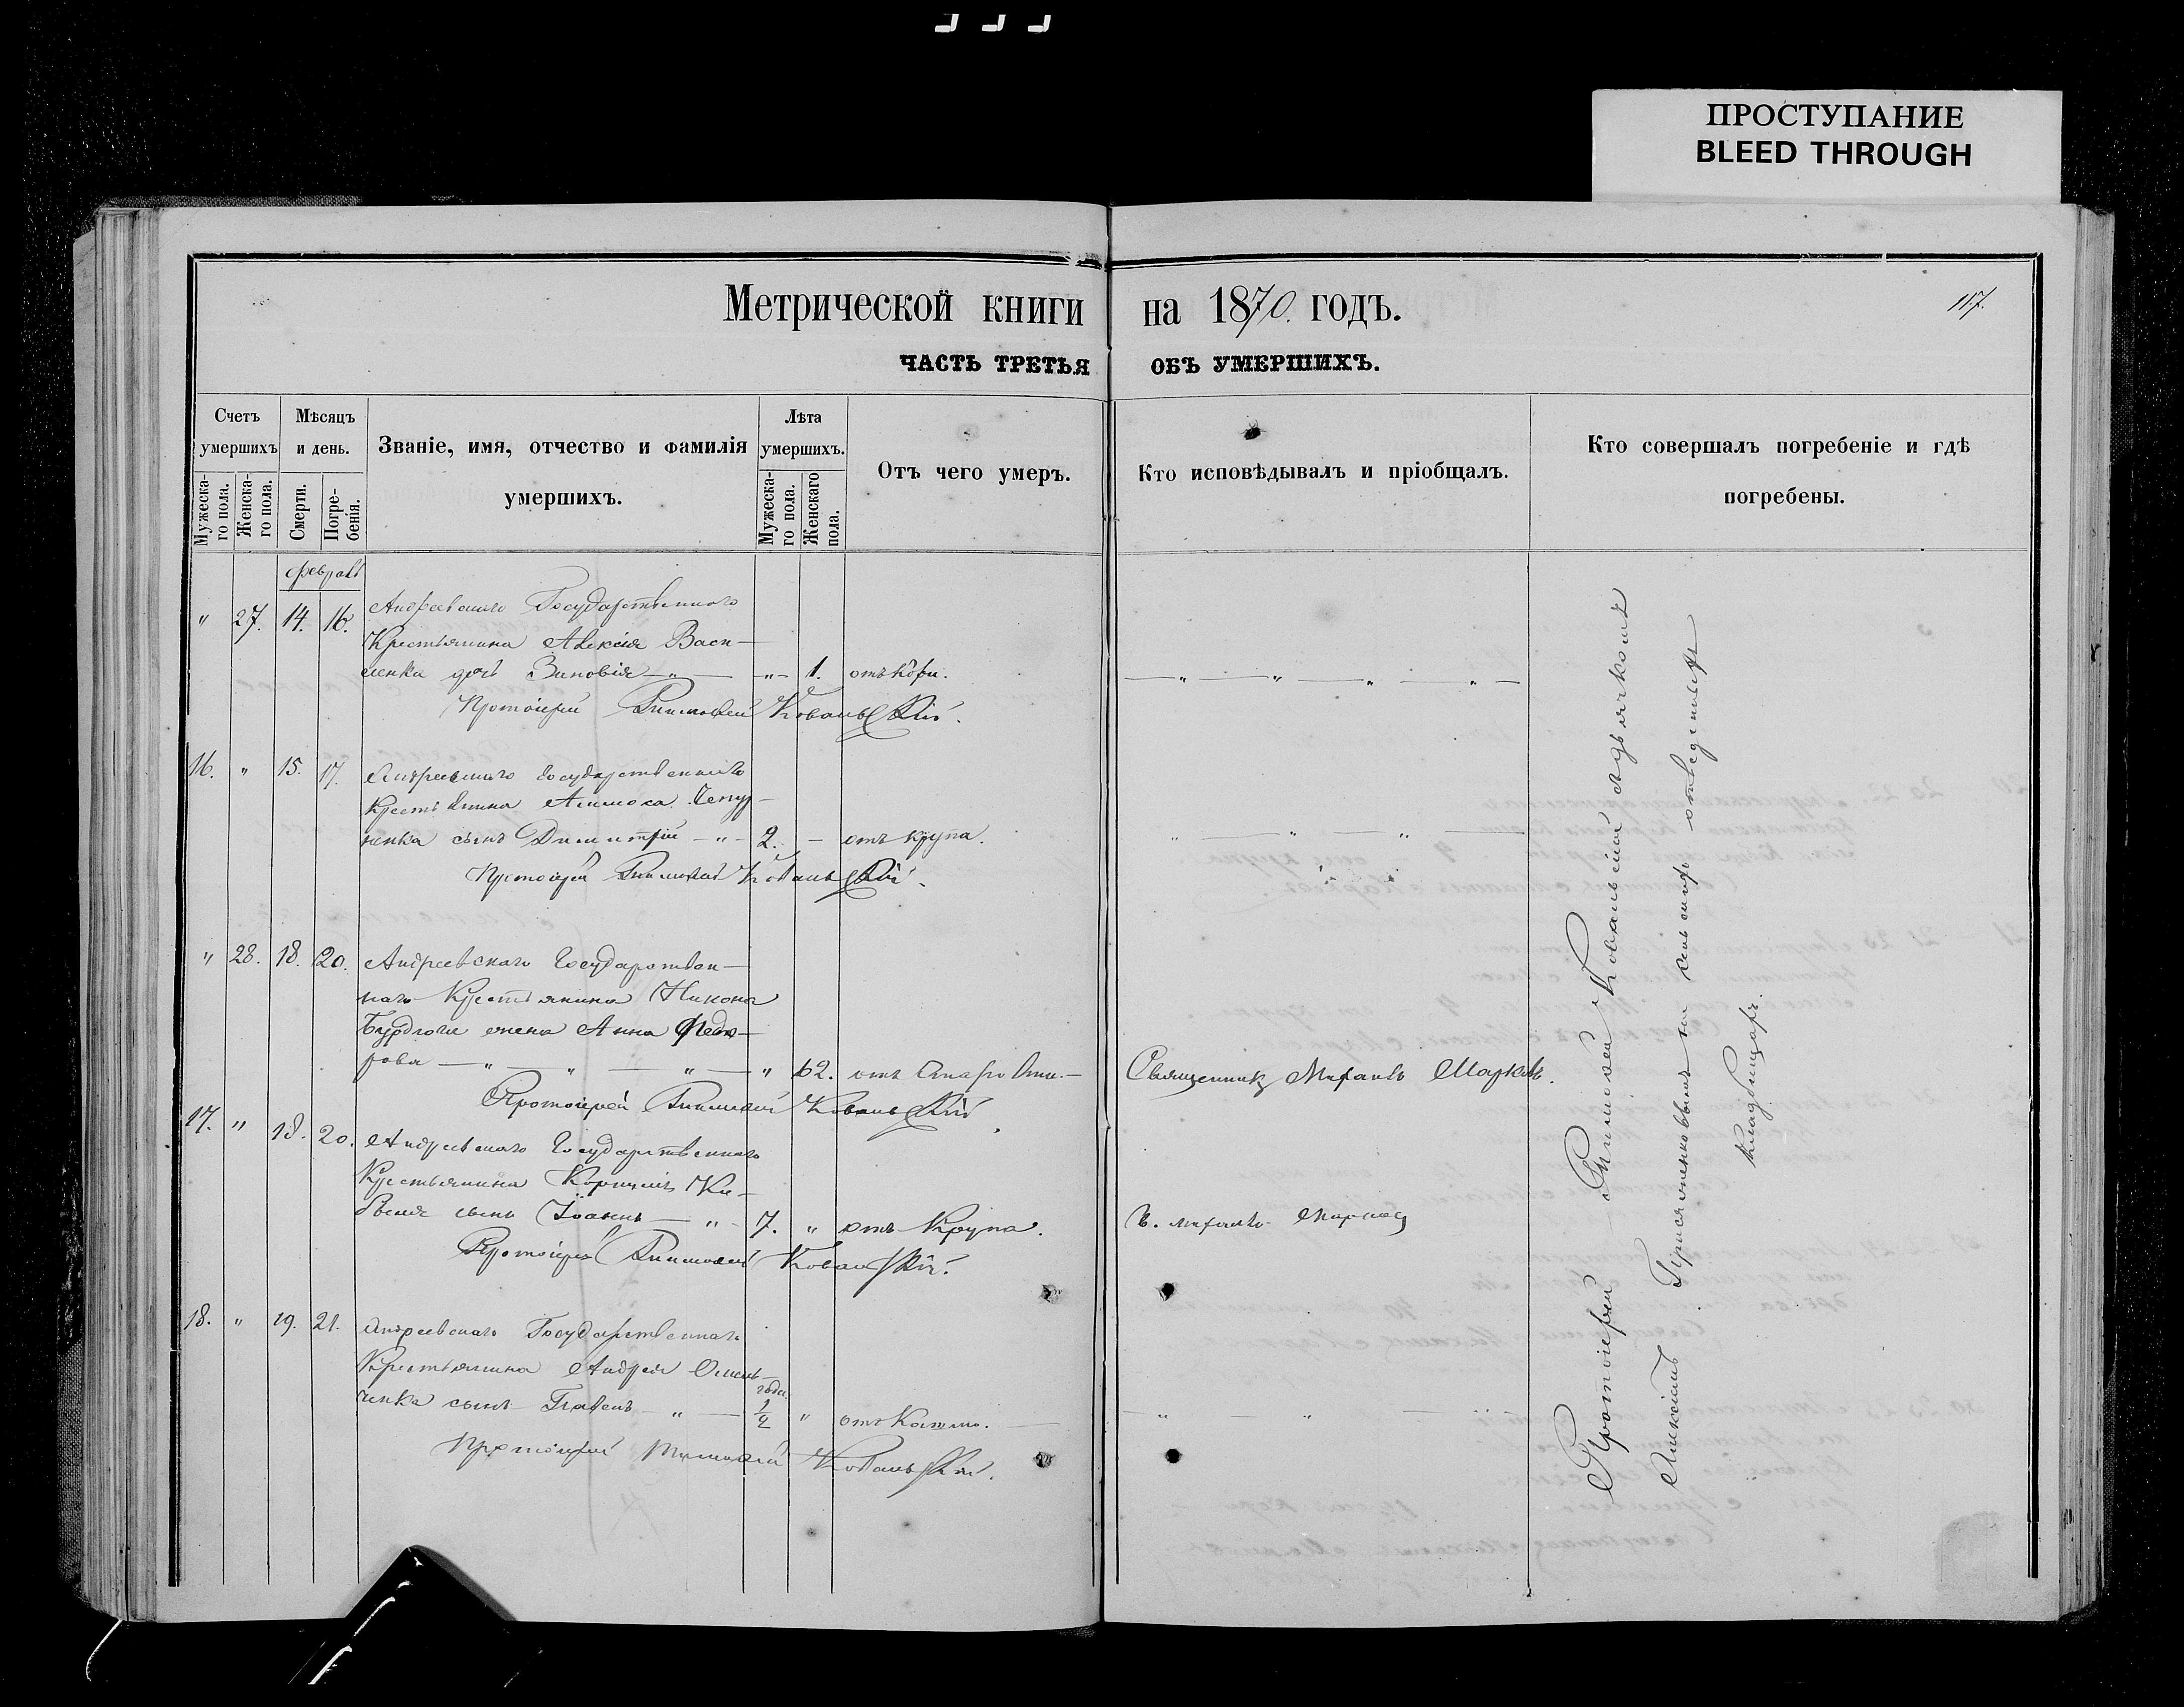 ПРОСТУПАНИЕ
BLEED THROUGH
Метрической книги на 1870. годъ.
117.
ЧАСТЬ ТРЕТЬЯ ОБЪ УМЕРШИХЪ.
Счетъ умершихъ
Мужеска-го пола.
Женска-го пола.
Мѣсяцъ и день.
Смерти.
Погре-бенія.
Званіе, имя, отчество и фамилія умершихъ.
Лѣта умершихъ.
Мужеска-го пола.
Женскаго пола.
Отъ чего умеръ.
Кто исповѣдывалъ и пріобщалъ.
Кто совершалъ погребеніе и гдѣ погребены.
февраль
" 27. 14. 16. Андреевскаго Государственнаго
Крестьянина Алексія Васи-
ленка дочь Зиновія — " — — " — 1. отъ кори. — " — " — " — " —
Протоіерей Тимофей Ковальскій.
16. " 15. 17. Андреевскаго Государственнаго
Крестьянина
ненка сынъ Димитрій — " — 2. — отъ крупа. " — " — " —
Протоіерей Тимофей Ковальскій.
" 28. 18. 20. Андреевскаго Государствен-
наго Крестьянина Никона
жена Анна Федо-
рова — " — " — " — " 62. отъ старости. — Священникъ Михаилъ Марковъ.
Протоіерей Тимофей Ковальскій.
17. " 18. 20. Андреевскаго Государственнаго
Крестьянина Корнилія Ки-
сынъ Іоаннъ — " — 7. " отъ крупа.
Протоіерей Тимофей Ковальскій.
18. " 19. 21. Андреевскаго Государственнаго
Крестьянина Андрея Омель-
ченка сынъ — " — года 1/2 " отъ кашлю. — — " — " —
Протоіерей Тимофей Ковальскій.
Протоіерей Тимофей Ковальскій съ дьячкомъ
Алексіемъ на сельскомъ отведенномъ
кладбищѣ.